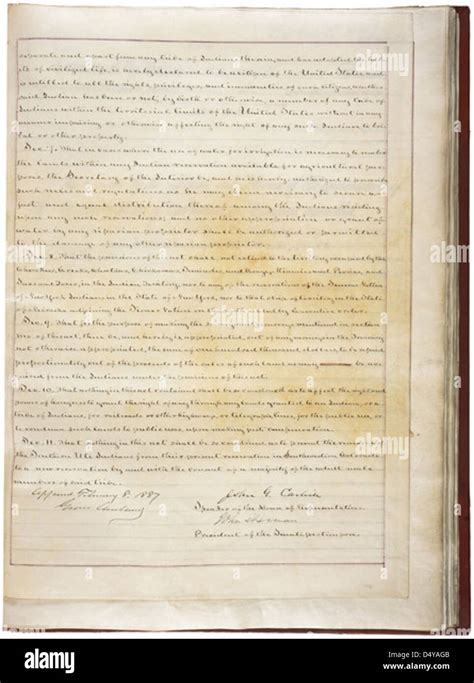 separate and apart from any tribe of Indians therein, and has adopted the hab-
its of civilized life, is hereby declared to be a citizen of the United States, and
is entitled to all the rights, privileges, and immunities of such citizens, whether
said Indian has been or not, by birth or otherwise, a member of any tribe of
Indians within the territorial limits of the United States without in any
manner impairing or otherwise affecting the right of any such Indian to tri-
bal or other property.
Sec. 7. That in cases where the use of water for irrigation is necessary to render
the lands within any Indian reservation available for agricultural pur-
poses, the Secretary of the Interior be, and he is hereby, authorized to prescribe
such rules and regulations as he may deem necessary to secure a
just and equal distribution thereof among the Indians residing
upon any such reservations; and no other appropriation or grant of
water by any riparian proprietor shall be authorized or permitted
to the damage of any other riparian proprietor.
Sec. 8. That the provisions of this act shall not extend to the territory occupied by the
Cherokees, Creeks, Choctaws, Chickasaws, Seminoles, and Osage, Miamies and Peorias, and
Sacs and Foxes, in the Indian Territory, nor to any of the reservations of the Seneca Nation
of New York Indians in the State of New York, nor to that strip of territory in the State
of Nebraska adjoining the Sioux Nation on the south added by executive order.
Sec. 9. That for the purpose of making the surveys and resurveys mentioned in section
two of this act, there be, and hereby is, appropriated, out of any moneys in the Treasury
not otherwise appropriated, the sum of one hundred thousand dollars, to be repaid
proportionately out of the proceeds of the sales of such land as may be ac-
quired from the Indians under the provisions of this act.
Sec. 10. That nothing in this act contained shall be so construed as to affect the right and
power of Congress to grant the right of way through any lands granted to an Indian, or a
tribe of Indians, for railroads or other highways, or telegraph lines, for the public use, or
to condemn such lands to public uses, upon making just compensation.
Sec. 11. That nothing in this act shall be so construed as to prevent the removal of
the Southern Ute Indians from their present reservation in Southwestern Colorado
to a new reservation by and with the consent of a majority of the adult male
members of said tribe.
Approved February 8. 1887
John G. Carlisle
Grover Cleveland
Speaker of the House of Representatives.
John Sherman
President of the Senate pro tempore.
alamy
Image ID: D4YAGB
www.alamy.com